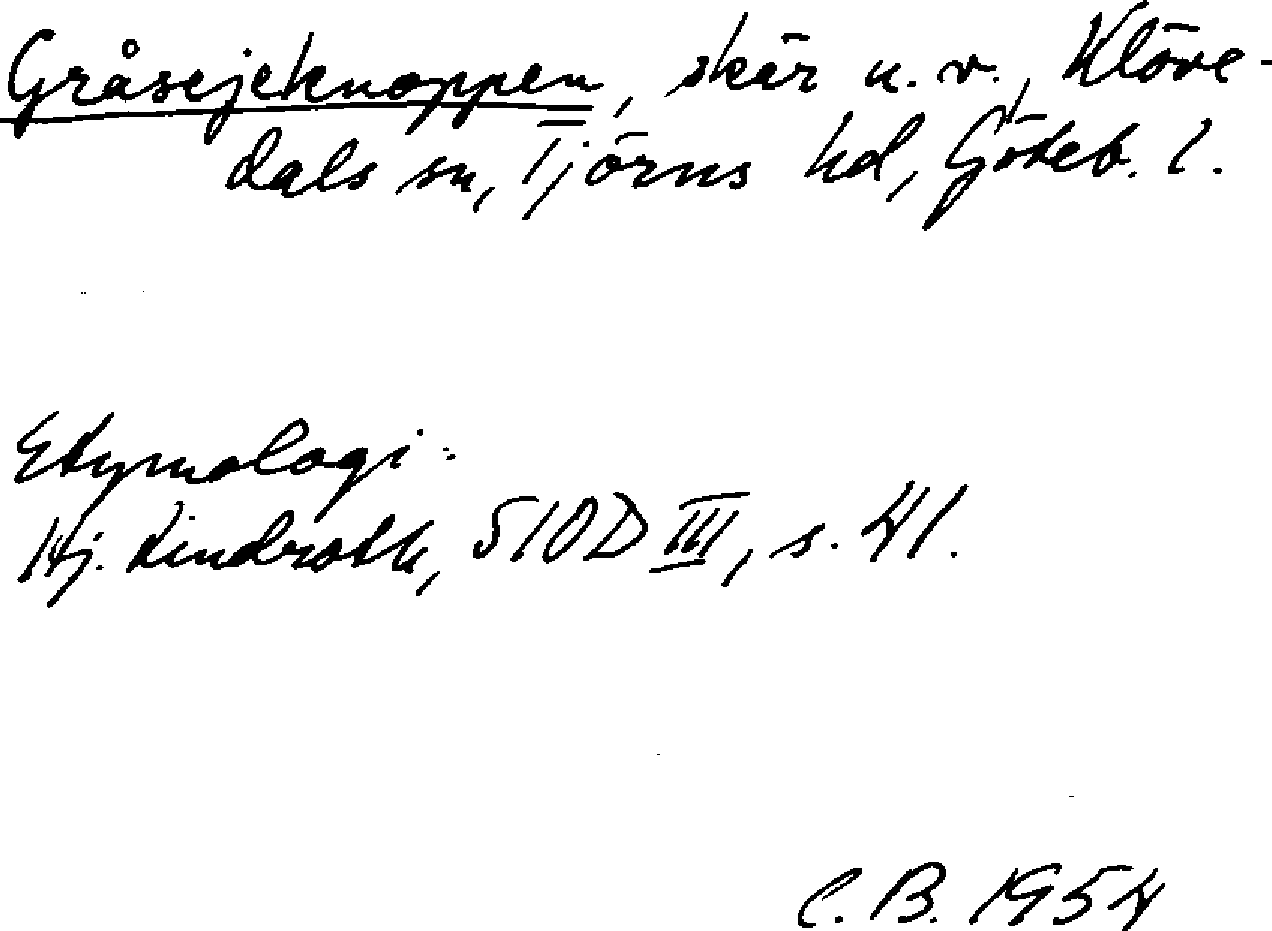 Gråsejeknoppen, skär u. v., Klöve-
dals sn, Tjörns hd, Göteb. l.
Etymologi:
Hj. Lindroth, SIOD III, s. 41.
C. B. 1954